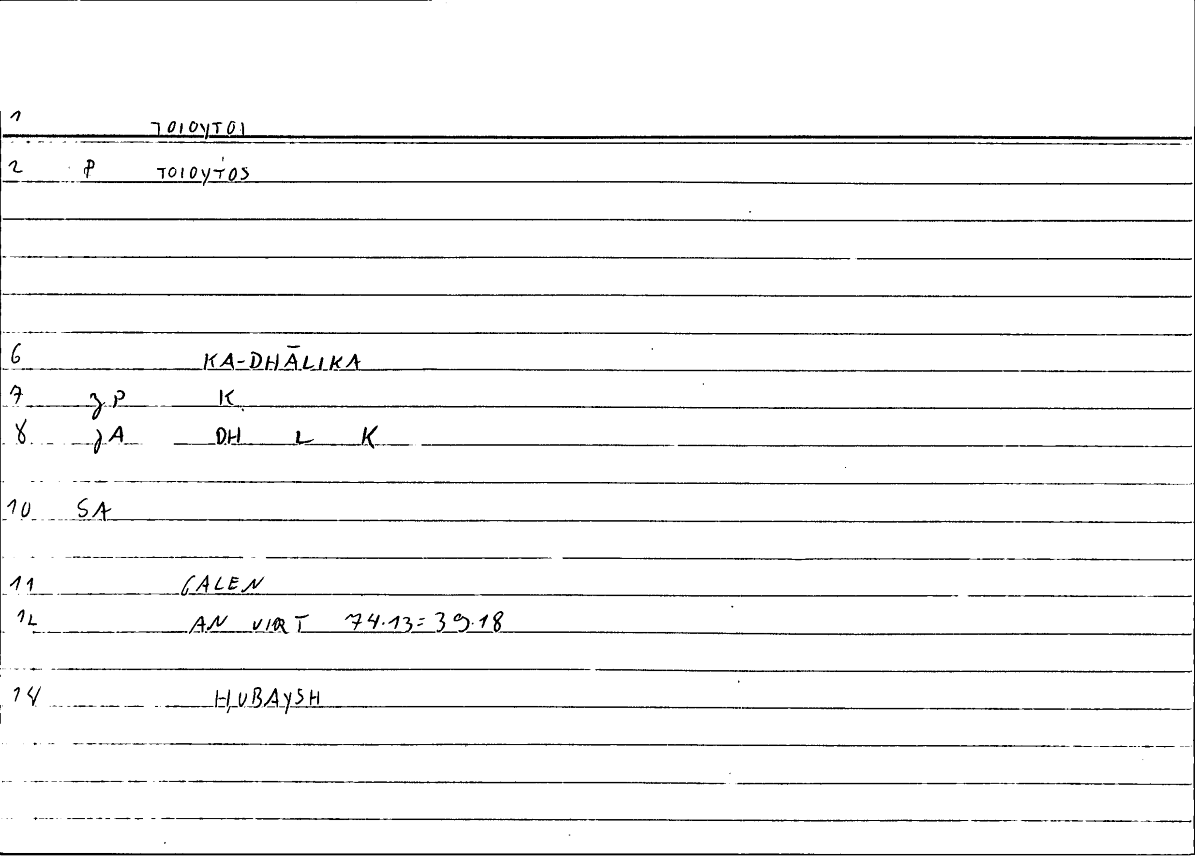 1 ΤΟΙΟΥΤΟΙ
2 P ΤΟΙΟΥΤΟS
6 KA-DHĀLIKA
7 ʒP K
8 ʒA DH L K
10 SA
11 GALEN
12 AN VIRT 74.13=39.18
14 ḤUBAYSH